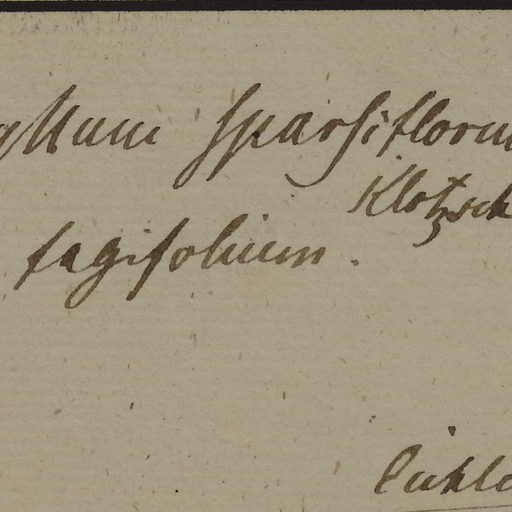 yllum sparsiflorum
Klotzsch
fagifolium.